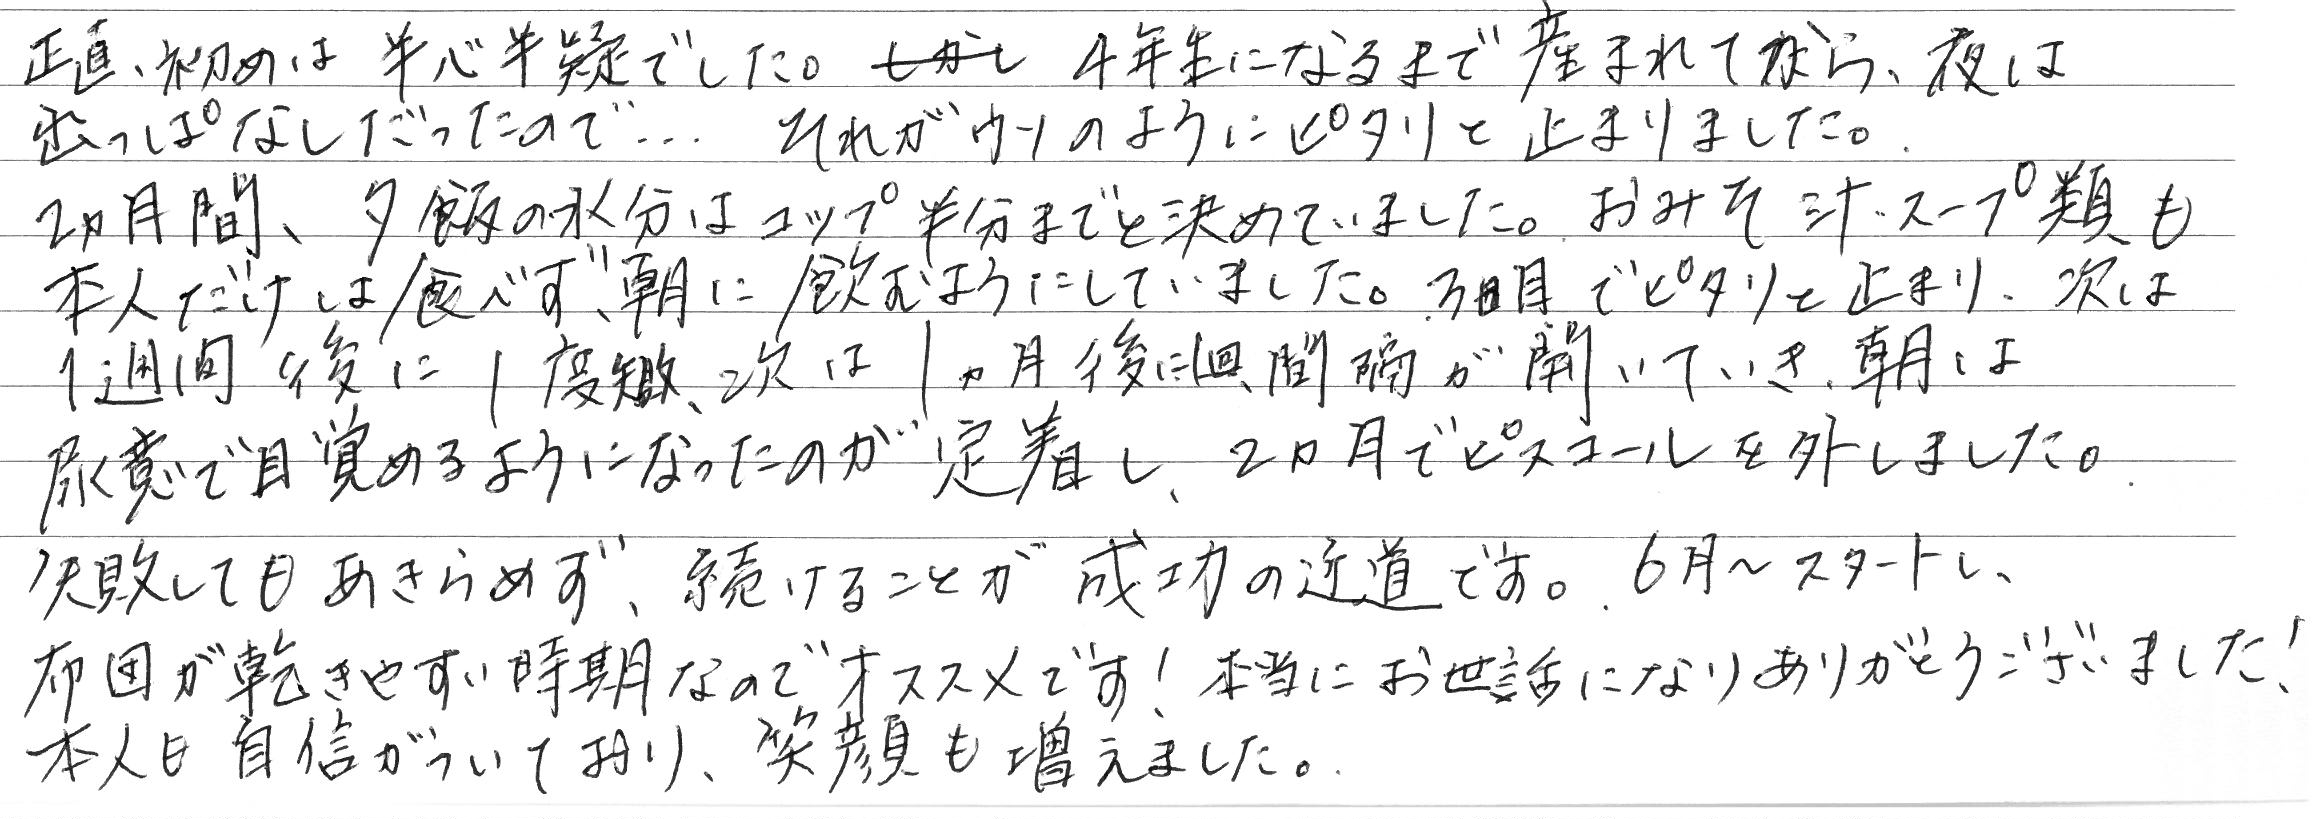 正直、初めは半心半疑でした。しかし 4年生になるまで産まれてから、夜は
出っぱなしだったので… それがウソのようにピタリと止まりました。
2ヵ月間、夕飯の水分はコップ半分までと決めていました。おみそ汁・スープ類も
本人だけは食べず、朝に飲むようにしていました。3日目でピタリと止まり、次は
1週間後に1度失敗、次は1ヵ月後に1回、間隔が開いていき、朝は
尿意で目覚めるようになったのが定着し、2ヵ月でピスコールを外しました。
失敗してもあきらめず、続けることが成功の近道です。6月～スタートし、
布団が乾きやすい時期なのでオススメです！本当にお世話になりありがとうございました！
本人も自信がついており、笑顔も増えました。